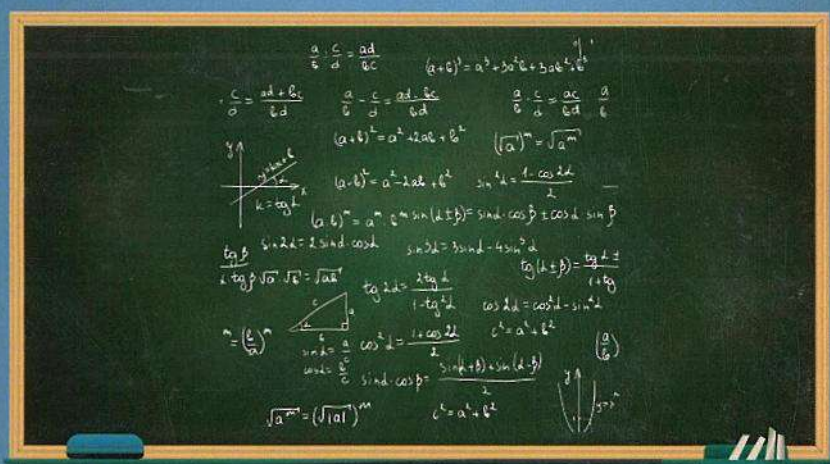 a/b : c/d = ad/bc
(a+b)³ = a³+3a²b+3ab²+b³
· c/d = ad+bc/bd
a/b - c/d = ad-bc/bd
a/b · c/d = ac/bd a/b
(a+b)² = a²+2ab+b²
(√a)ᵐ = √aᵐ
y
y=kx+b
α
x
k=tgα
(a-b)² = a²-2ab+b²
sin²α = 1-cos2α/2
(a·b)ᵐ = aᵐ·bᵐ
sin(α±β) = sinα·cosβ±cosα sinβ
tgβ
sin2α = 2sinα·cosα
sin3α = 3sinα-4sin³α
tg(α±β) = tgα±/1+tg
α·tgβ
√a·√b = √ab
tg2α = 2tgα/1-tg²α
cos2α = cos²α-sin²α
c
a
b
α
ᵐ = (b/a)ᵐ
c² = a²+b²
cos²α = 1+cos2α/2
(a/b)
sinα = a/c
cosα = b/c
sinα·cosβ = sin(α+β)+sin(α-β)/2
y
√aᵐ = (√|a|)ᵐ
c² = a²+b²